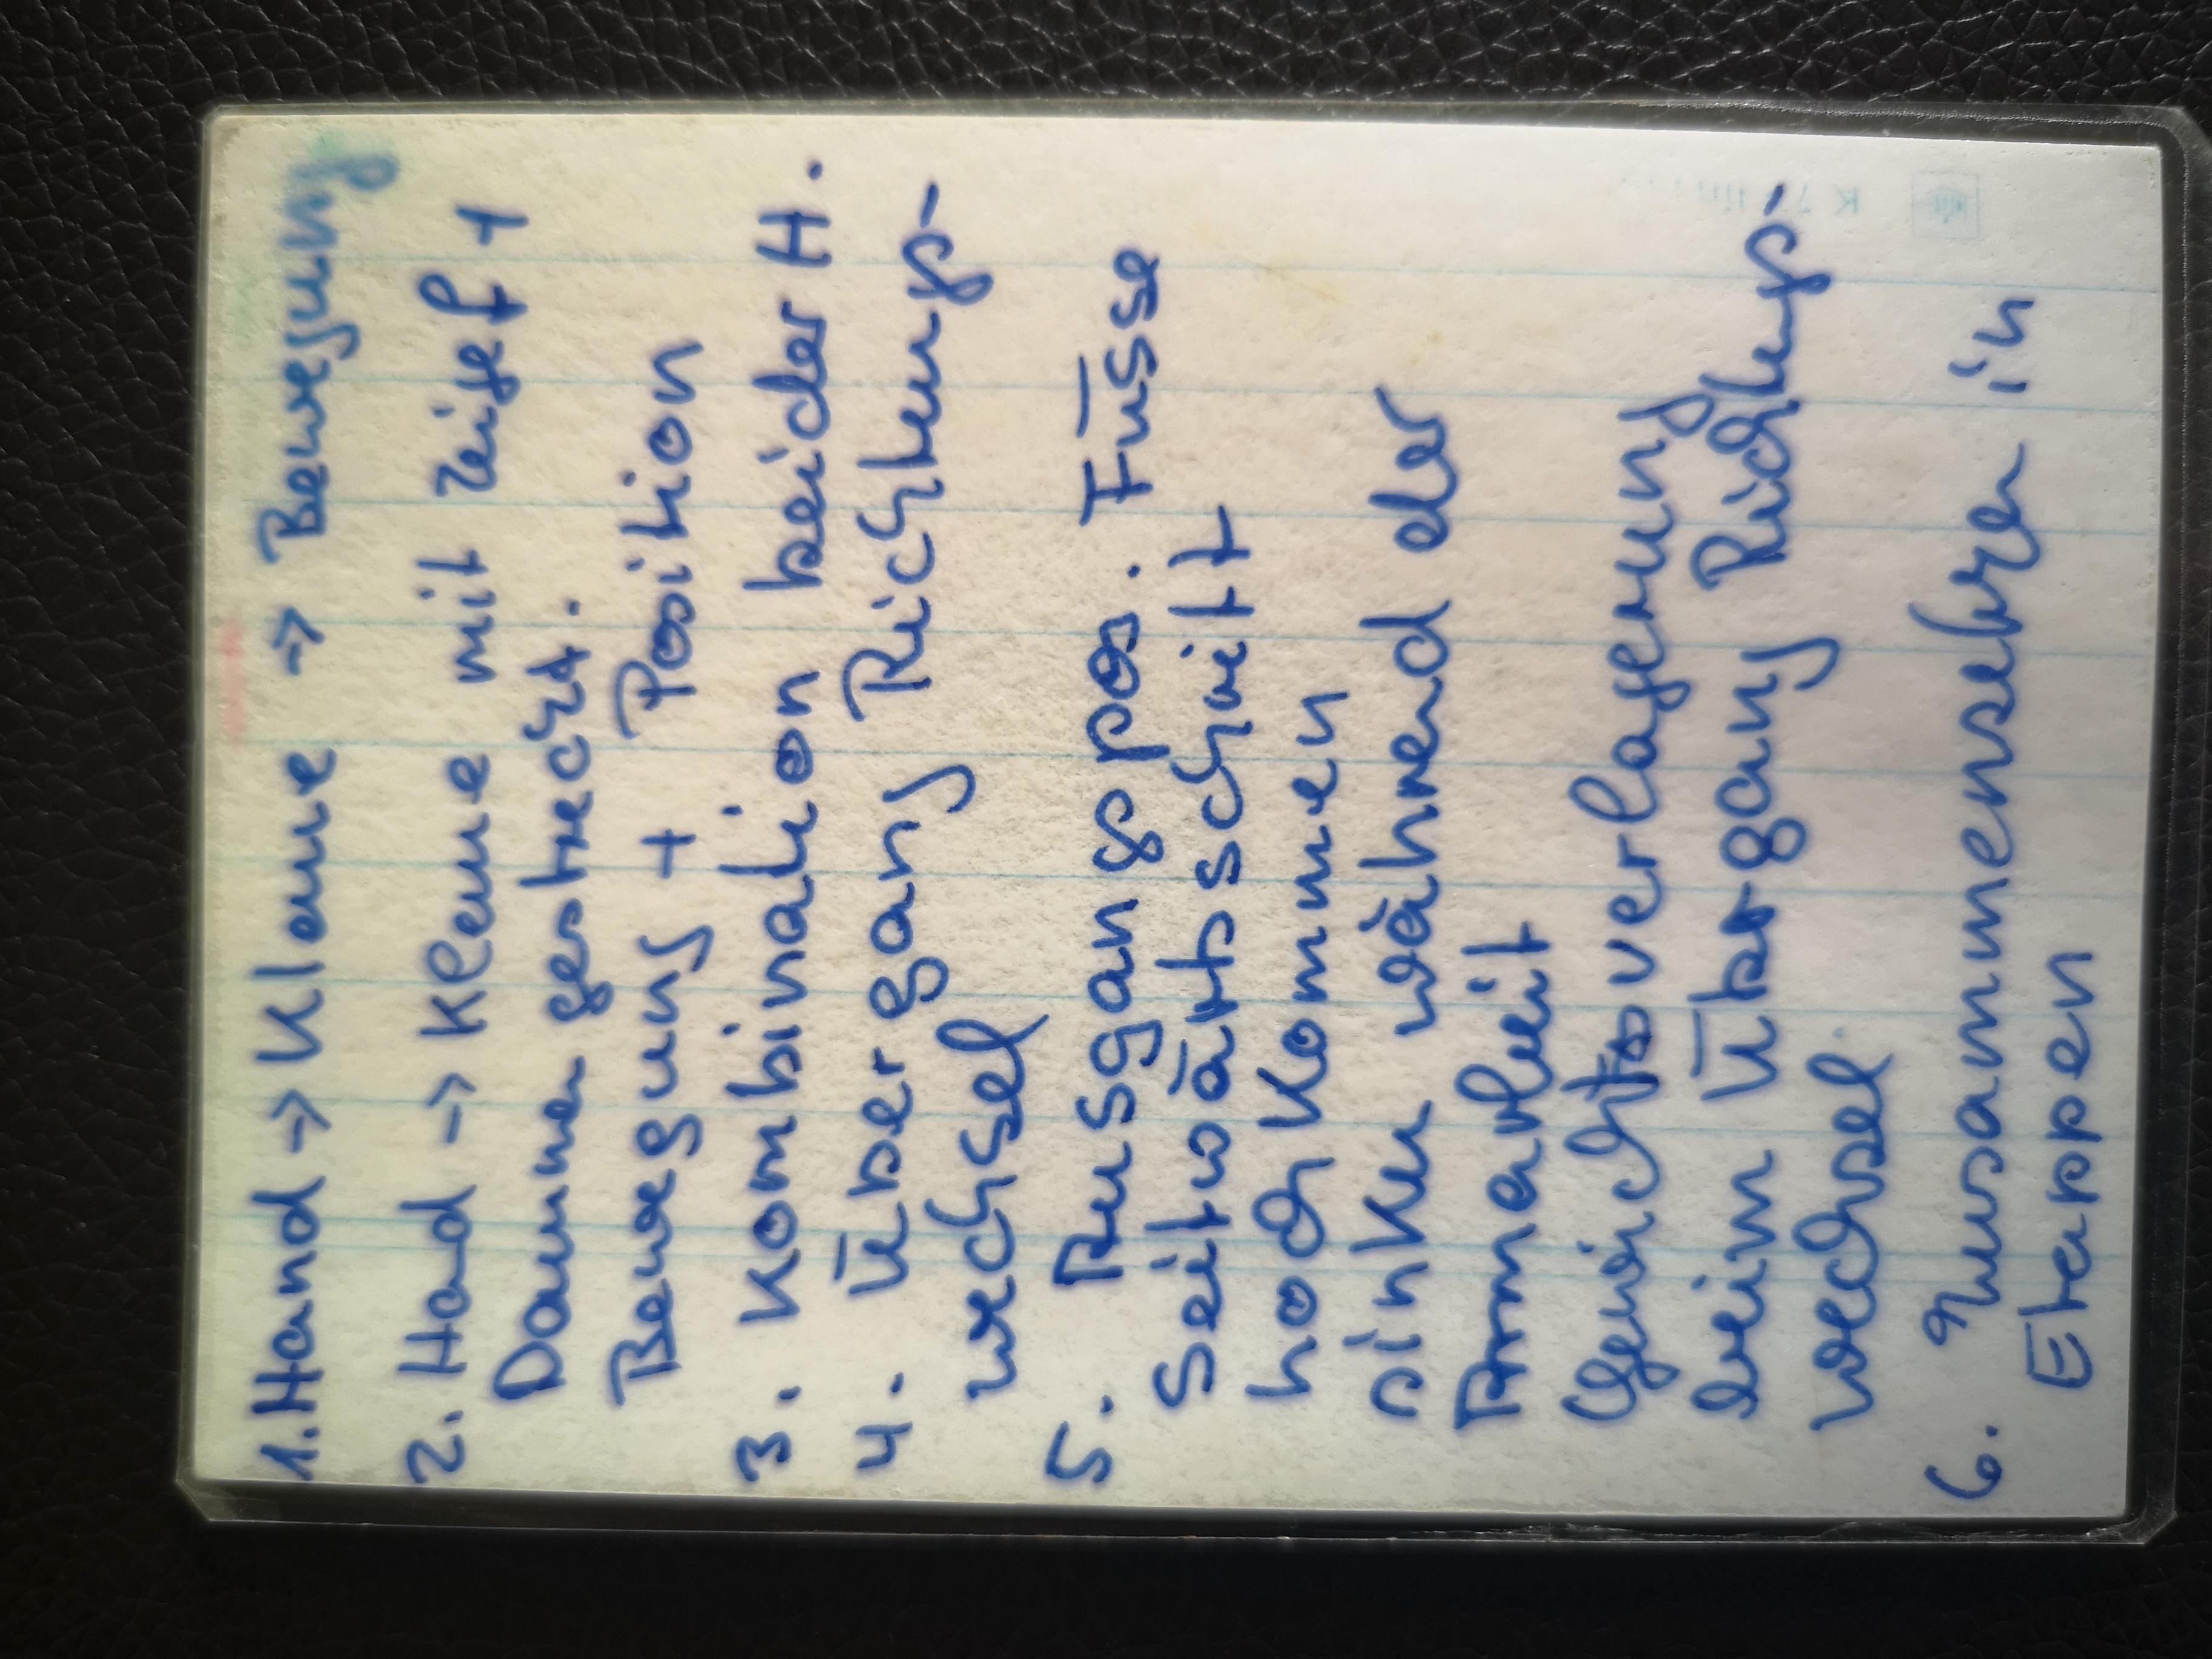 1. Hand → Klaue → Bewegung
2. Hand → Klaue mit Zeigef +
Daumen gestreckt.
Bewegung + Position
3. Kombination beider H.
4. Übergang Richtungs-
wechsel
5. Ausgangspos. Füsse
Seitwärtsschritt
hochkommen
sinken während der
Armarbeit
Gewichtsverlagerung
beim Übergang Richtungs-
wechsel
6. Zusammensetzen in
Etappen